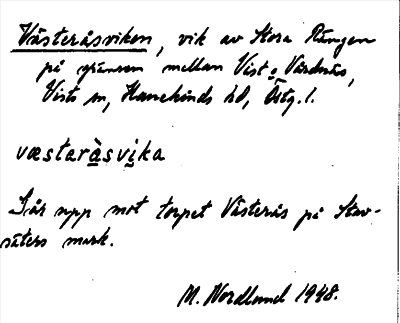 Västeråsviken, vik av Stora Rängen
på gränsen mellan Vist o Vårdnäs,
Vists sn, Hanekinds hd, Östg. l.
væsteràsvi̱ka
Går upp mot torpet Västerås på Stav-
säters mark.
M. Nordlund 1948.